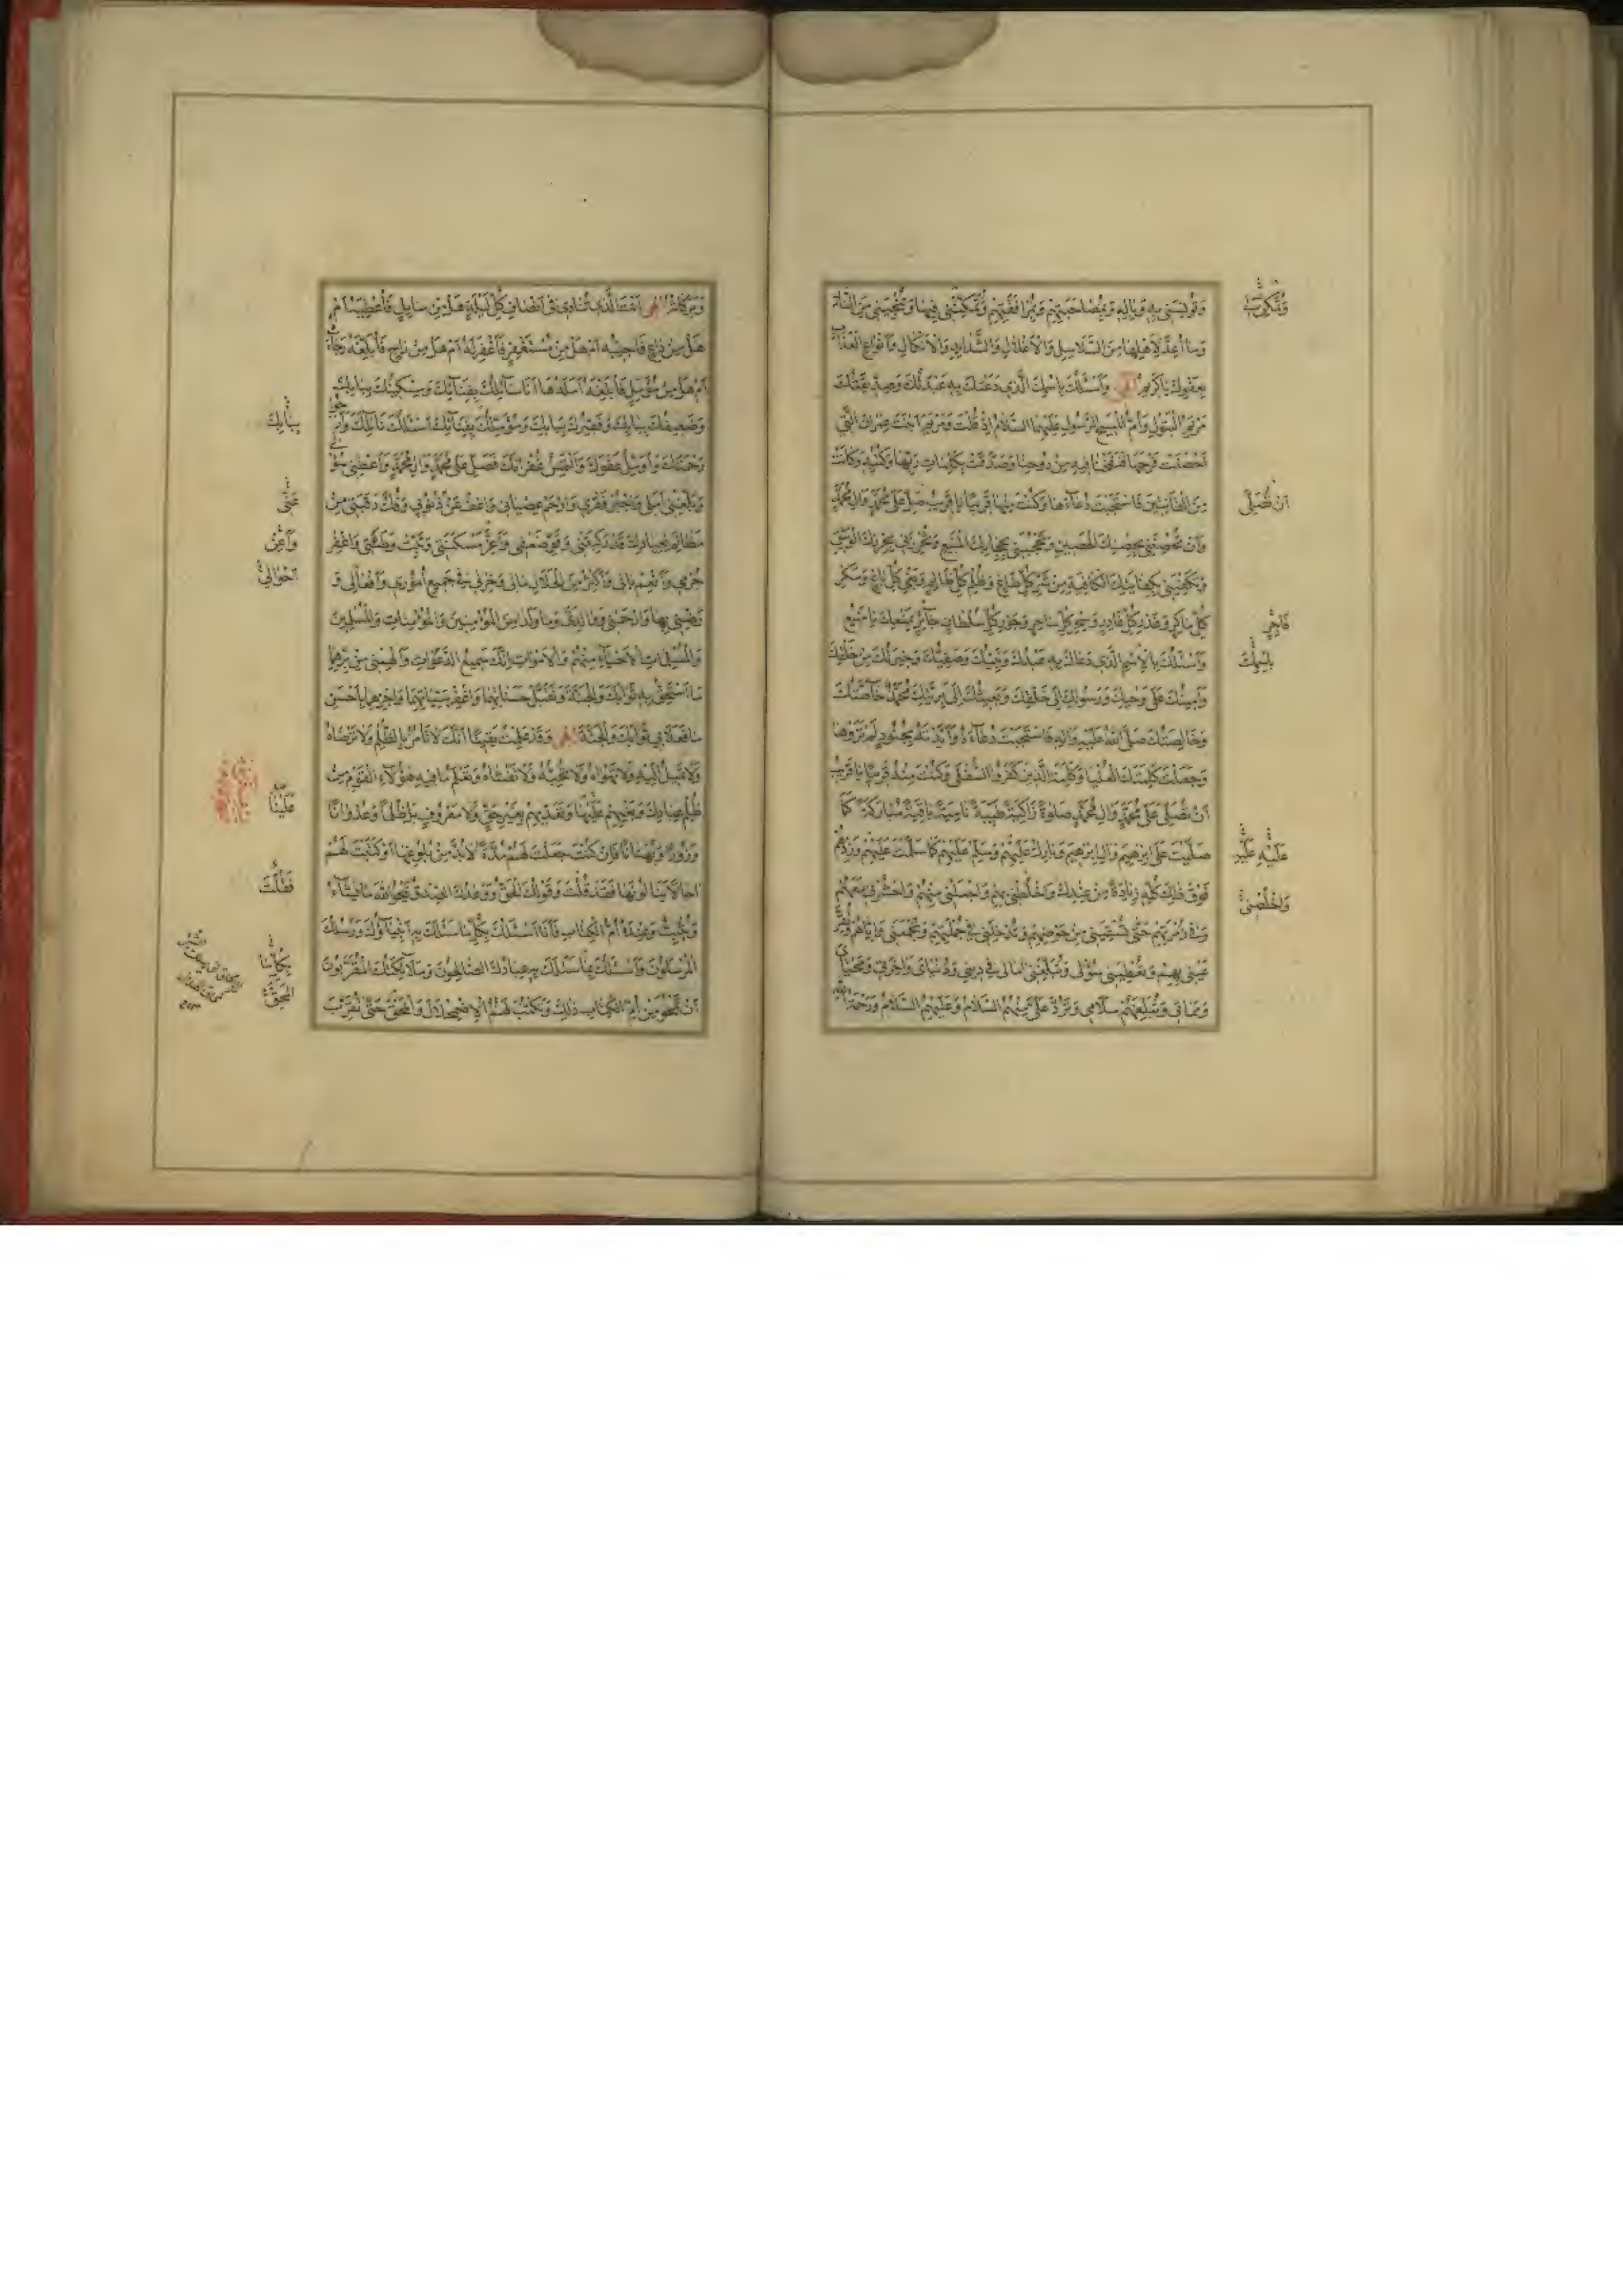 وَتُونِسَنِي بِهِ وَبِالِهِ وَبِمُصَاحَبَتِهِمْ وَمُرَافَقَتِهِمْ وَتُمَكِّنَنِي فِيهَا وَتُنْجِيَنِي مِنَ النَّارِ
وَمَا أُعِدَّ لِأَهْلِهَا مِنَ السَّلَاسِلِ وَالْأَغْلَالِ وَالشَّدَايِدِ وَالْأَنْكَالِ وَأَنْوَاعِ الْعَذَابِ
بِعَفْوِكَ يَا كَرِيمُ إِلٰهِي وَأَسْئَلُكَ بِاسْمِكَ الَّذِي دَعَتْكَ بِهِ عَبْدَتُكَ وَصِدِّيقَتُكَ
مَرْيَمُ الْبَتُولُ وَأُمُّ الْمَسِيحِ الرَّسُولِ عَلَيْهِمَا السَّلَامُ إِذْ قُلْتَ وَمَرْيَمَ ابْنَتَ عِمْرَانَ الَّتِي
أَحْصَنَتْ فَرْجَهَا فَنَفَخْنَا فِيهِ مِنْ رُوحِنَا وَصَدَّقَتْ بِكَلِمَاتِ رَبِّهَا وَكُتُبِهِ وَكَانَتْ
مِنَ الْقَانِتِينَ فَاسْتَجَبْتَ دُعَاءَهَا وَكُنْتَ مِنْهَا قَرِيبًا يَا قَرِيبُ صَلِّ عَلَى مُحَمَّدٍ وَالِ مُحَمَّدٍ
وَأَنْ تُحْصِنَنِي بِحِصْنِكَ الْحَصِينِ وَتَحْجُبَنِي بِحِجَابِكَ الْمَنِيعِ وَتُحْرِزَنِي بِحِرْزِكَ الْوَثِيقِ
وَتَكْفِيَنِي بِكِفَايَتِكَ الْكَافِيَةِ مِنْ شَرِّ كُلِّ طَاغٍ وَظُلْمِ كُلِّ ظَالِمٍ وَبَغْيِ كُلِّ بَاغٍ وَمَكْرِ
كُلِّ مَاكِرٍ وَغَدْرِ كُلِّ غَادِرٍ وَسِحْرِ كُلِّ سَاحِرٍ وَجَوْرِ كُلِّ سُلْطَانٍ جَائِرٍ بِمَنْعِكَ يَا مَنِيعُ
وَأَسْئَلُكَ بِالْاِسْمِ الَّذِي دَعَاكَ بِهِ عَبْدُكَ وَنَبِيُّكَ وَصَفِيُّكَ وَخِيَرَتُكَ مِنْ خَلْقِكَ
وَأَمِينُكَ عَلَى وَحْيِكَ وَرَسُولُكَ إِلَى خَلْقِكَ وَبَعِيثُكَ إِلَى بَرِيَّتِكَ مُحَمَّدٌ خَاصَّتُكَ
وَخَالِصَتُكَ صَلَّى اللهُ عَلَيْهِ وَالِهِ فَاسْتَجَبْتَ دُعَاءَهُ وَأَيَّدْتَهُ بِجُنُودٍ لَمْ تَرَوْهَا
وَجَعَلْتَ كَلِمَتَكَ الْعُلْيَا وَكَلِمَةَ الَّذِينَ كَفَرُوا السُّفْلَى وَكُنْتَ مِنْهُ قَرِيبًا يَا قَرِيبُ
أَنْ تُصَلِّيَ عَلَى مُحَمَّدٍ وَالِ مُحَمَّدٍ صَلَوةً زَاكِيَةً طَيِّبَةً نَامِيَةً بَاقِيَةً مُبَارَكَةً كَمَا
صَلَّيْتَ عَلَى إِبْرٰهِيمَ وَالِ إِبْرٰهِيمَ وَبَارِكْ عَلَيْهِمْ وَسَلِّمْ عَلَيْهِمْ كَمَا سَلَّمْتَ عَلَيْهِمْ وَزِدْهُمْ
فَوْقَ ذٰلِكَ كُلِّهِ زِيَادَةً مِنْ عِنْدِكَ وَاخْلُطْنِي بِهِمْ وَاجْعَلْنِي مِنْهُمْ وَاحْشُرْنِي مَعَهُمْ
وَفِي زُمْرَتِهِمْ حَتَّى تَسْقِيَنِي مِنْ حَوْضِهِمْ وَتُدْخِلَنِي فِي جُمْلَتِهِمْ وَتَجْمَعَنِي وَإِيَّاهُمْ وَتُقِرَّ
عَيْنِي بِهِمْ وَتُعْطِيَنِي سُؤْلِي وَتُبَلِّغَنِي امَالِي فِي دِينِي وَدُنْيَايَ وَاخِرَتِي وَمَحْيَايَ
وَمَمَاتِي وَتُبَلِّغَهُمْ سَلَامِي وَتَرُدَّ عَلَيَّ مِنْهُمُ السَّلَامُ وَعَلَيْهِمُ السَّلَامُ وَرَحْمَةُ اللهِ
أَنْ تُصَلِّيَ
فَاجِرٍ
بِاسْمِكَ
عَلَيْهِ عَلَيْهِ
وَاخْلُصْنِي
وَبَرَكَاتُهُ إِلٰهِي أَنْتَ الَّذِي تُنَادِي فِي أَنْصَافِ كُلِّ لَيْلَةٍ هَلْ مِنْ سَايِلٍ فَأُعْطِيَهُ أَمْ
هَلْ مِنْ دَاعٍ فَأُجِيبَهُ أَمْ هَلْ مِنْ مُسْتَغْفِرٍ فَأَغْفِرَ لَهُ أَمْ هَلْ مِنْ رَاجٍ فَأُبَلِّغَهُ رَجَاهُ
أَمْ هَلْ مِنْ مُؤَمِّلٍ فَأُبَلِّغَهُ أَمَلَهُ هَا أَنَا سَائِلُكَ بِفِنَائِكَ وَمِسْكِينُكَ بِبَابِكَ
وَضَعِيفُكَ بِبَابِكَ وَفَقِيرُكَ بِبَابِكَ وَمُؤَمِّلُكَ بِفِنَائِكَ أَسْئَلُكَ نَائِلَكَ وَأَرْجُو
رَحْمَتَكَ وَأُؤَمِّلُ عَفْوَكَ وَأَلْتَمِسُ غُفْرَانَكَ فَصَلِّ عَلَى مُحَمَّدٍ وَالِ مُحَمَّدٍ وَأَعْطِنِي سُؤْلِي
وَبَلِّغْنِي أَمَلِي وَاجْبُرْ فَقْرِي وَارْحَمْ عِصْيَانِي وَاعْفُ عَنْ ذُنُوبِي وَفُكَّ رَقَبَتِي مِنْ
مَظَالِمَ لِعِبَادِكَ قَدْ رَكِبَتْنِي وَقَوِّ ضَعْفِي وَأَعِزَّ مَسْكَنَتِي وَثَبِّتْ وَطْأَتِي وَاغْفِرْ
جُرْمِي وَأَنْعِمْ بَالِي وَأَكْثِرْ مِنَ الْحَلَالِ مَالِي وَخِرْ لِي فِي جَمِيعِ أُمُورِي وَأَفْعَالِي وَ
رَضِّنِي بِهَا وَارْحَمْنِي وَوَالِدَيَّ وَمَا وَلَدَا مِنَ الْمُؤْمِنِينَ وَالْمُؤْمِنَاتِ وَالْمُسْلِمِينَ
وَالْمُسْلِمَاتِ الْأَحْيَاءِ مِنْهُمْ وَالْأَمْوَاتِ إِنَّكَ سَمِيعُ الدَّعَوَاتِ وَأَلْهِمْنِي مِنْ بِرِّهِمَا
مَا أَسْتَحِقُّ بِهِ ثَوَابَكَ وَالْجَنَّةَ وَتَقَبَّلْ حَسَنَاتِهِمَا وَاغْفِرْ سَيِّئَاتِهِمَا وَاجْزِهِمَا بِأَحْسَنِ
مَا فَعَلَا بِي ثَوَابَكَ وَالْجَنَّةَ إِلٰهِي وَقَدْ عَلِمْتُ يَقِينًا أَنَّكَ لَا تَأْمُرُ بِالظُّلْمِ وَلَا تَرْضَاهُ
وَلَا تَمِيلُ إِلَيْهِ وَلَا تَهْوَاهُ وَلَا تُحِبُّهُ وَلَا تَغْشَاهُ وَتَعْلَمُ مَا فِيهِ هٰؤُلَاءِ الْقَوْمُ مِنْ
ظُلْمِ عِبَادِكَ وَبَغْيِهِمْ عَلَيْنَا وَتَعَدِّيهِمْ بِغَيْرِ حَقٍّ وَلَا مَعْرُوفٍ بَلْ ظُلْمًا وَعُدْوَانًا
وَزُورًا وَبُهْتَانًا فَإِنْ كُنْتَ جَعَلْتَ لَهُمْ مُدَّةً لَا بُدَّ مِنْ بُلُوغِهَا أَوْ كَتَبْتَ لَهُمْ
اجَالًا يَنَالُونَهَا فَقَدْ قُلْتَ وَقَوْلُكَ الْحَقُّ وَوَعْدُكَ الصِّدْقُ يَمْحُوا اللهُ مَا يَشَاءُ
وَيُثْبِتُ وَعِنْدَهُ أُمُّ الْكِتَابِ فَأَنَا أَسْئَلُكَ بِكُلِّ مَا سَئَلَكَ بِهِ أَنْبِيَاؤُكَ وَرُسُلُكَ
الْمُرْسَلُونَ وَأَسْئَلُكَ بِمَا سَئَلَكَ بِهِ عِبَادُكَ الصَّالِحُونَ وَمَلٰئِكَتُكَ الْمُقَرَّبُونَ
أَنْ تَمْحُوَ مِنْ أُمِّ الْكِتَابِ ذٰلِكَ وَتَكْتُبَ لَهُمُ الْاِضْمِحْلَالَ وَالْمَحْقَ حَتَّى تُقَرِّبَ
بِبَابِكَ
عَنِّي
وَأَعِنْ
أَحْوَالِي
عَلَيْنَا
فَقُلْتَ
بِكُلِّ مَا